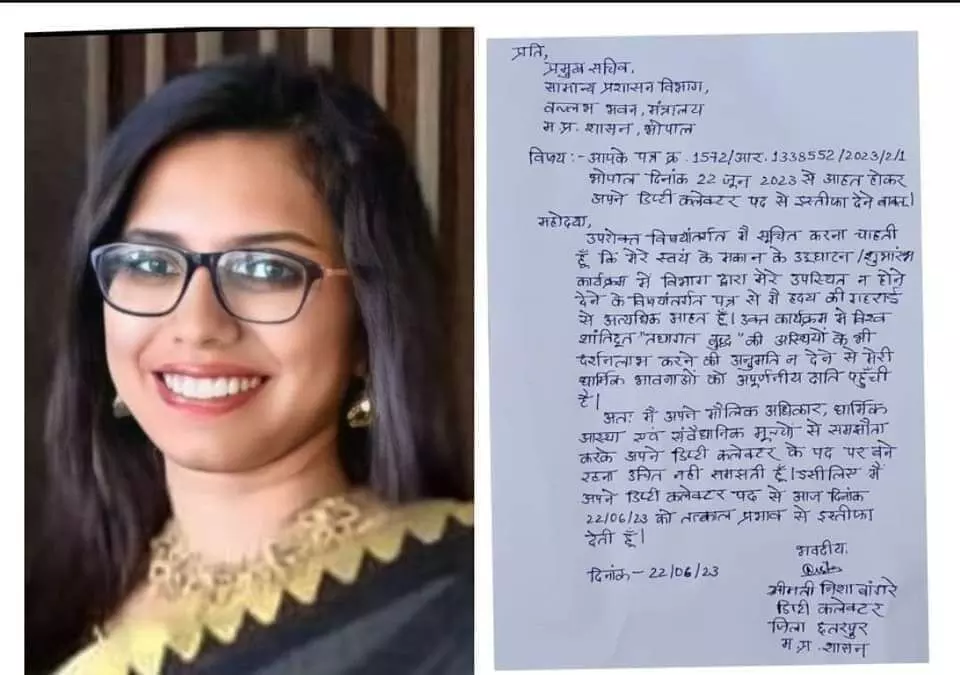 प्रति,
प्रमुख सचिव,
सामान्य प्रशासन विभाग,
वल्लभ भवन, मंत्रालय
म.प्र. शासन, भोपाल
विषय :- आपके पत्र क्र. 1572/आर.1338552/2023/2/1
भोपाल दिनांक 22 जून 2023 से आहत होकर
अपने डिप्टी कलेक्टर पद से इस्तीफा देने बाबत।
महोदया,
उपरोक्त विषयांतर्गत मैं सूचित करना चाहती
हूँ कि मेरे स्वयं के मकान के उद्घाटन/शुभारंभ
कार्यक्रम में विभाग द्वारा मेरे उपस्थित न होने
देने के विषयांतर्गत पत्र से मैं हृदय की गहराई
से अत्यधिक आहत हूँ। उक्त कार्यक्रम में विश्व
शांतिदूत "तथागत बुद्ध" की अस्थियों के भी
दर्शनलाभ करने की अनुमति न देने से मेरी
धार्मिक भावनाओं को अपूर्णनीय क्षति पहुँची
है।
अतः मैं अपने मौलिक अधिकार, धार्मिक
आस्था एवं संवैधानिक मूल्यों से समझौता
करके अपने डिप्टी कलेक्टर के पद पर बने
रहना उचित नहीं समझती हूँ। इसीलिए मैं
अपने डिप्टी कलेक्टर पद से आज दिनांक
22/06/23 को तत्काल प्रभाव से इस्तीफा
देती हूँ।
भवदीय.
दिनांक - 22/06/23
श्रीमती निशा बांगरे
डिप्टी कलेक्टर
जिला छतरपुर
म.प्र. शासन